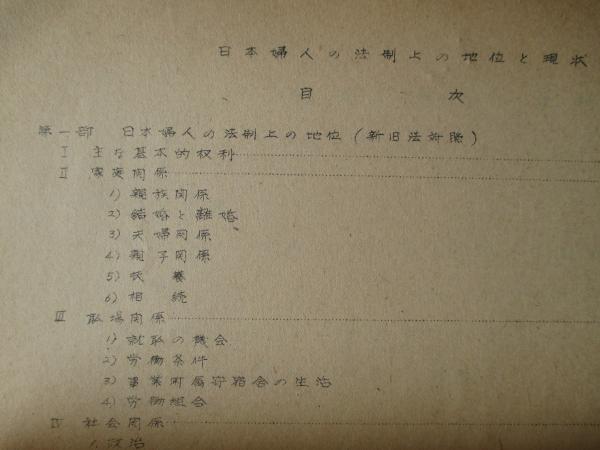 日本婦人の法制上の地位と現状
目 次
第一部 日本婦人の法制上の地位(新旧法対照)
I 主な基本的权利
II 家庭関係
1) 親族関係
2) 結婚と離婚
3) 夫婦関係
4) 親子関係
5) 扶養
6) 相続
III 職場関係
1) 就職の機会
2) 労働条件
3) 事業附属寄宿舎の生活
4) 労働組合
IV 社会関係
1. 政治